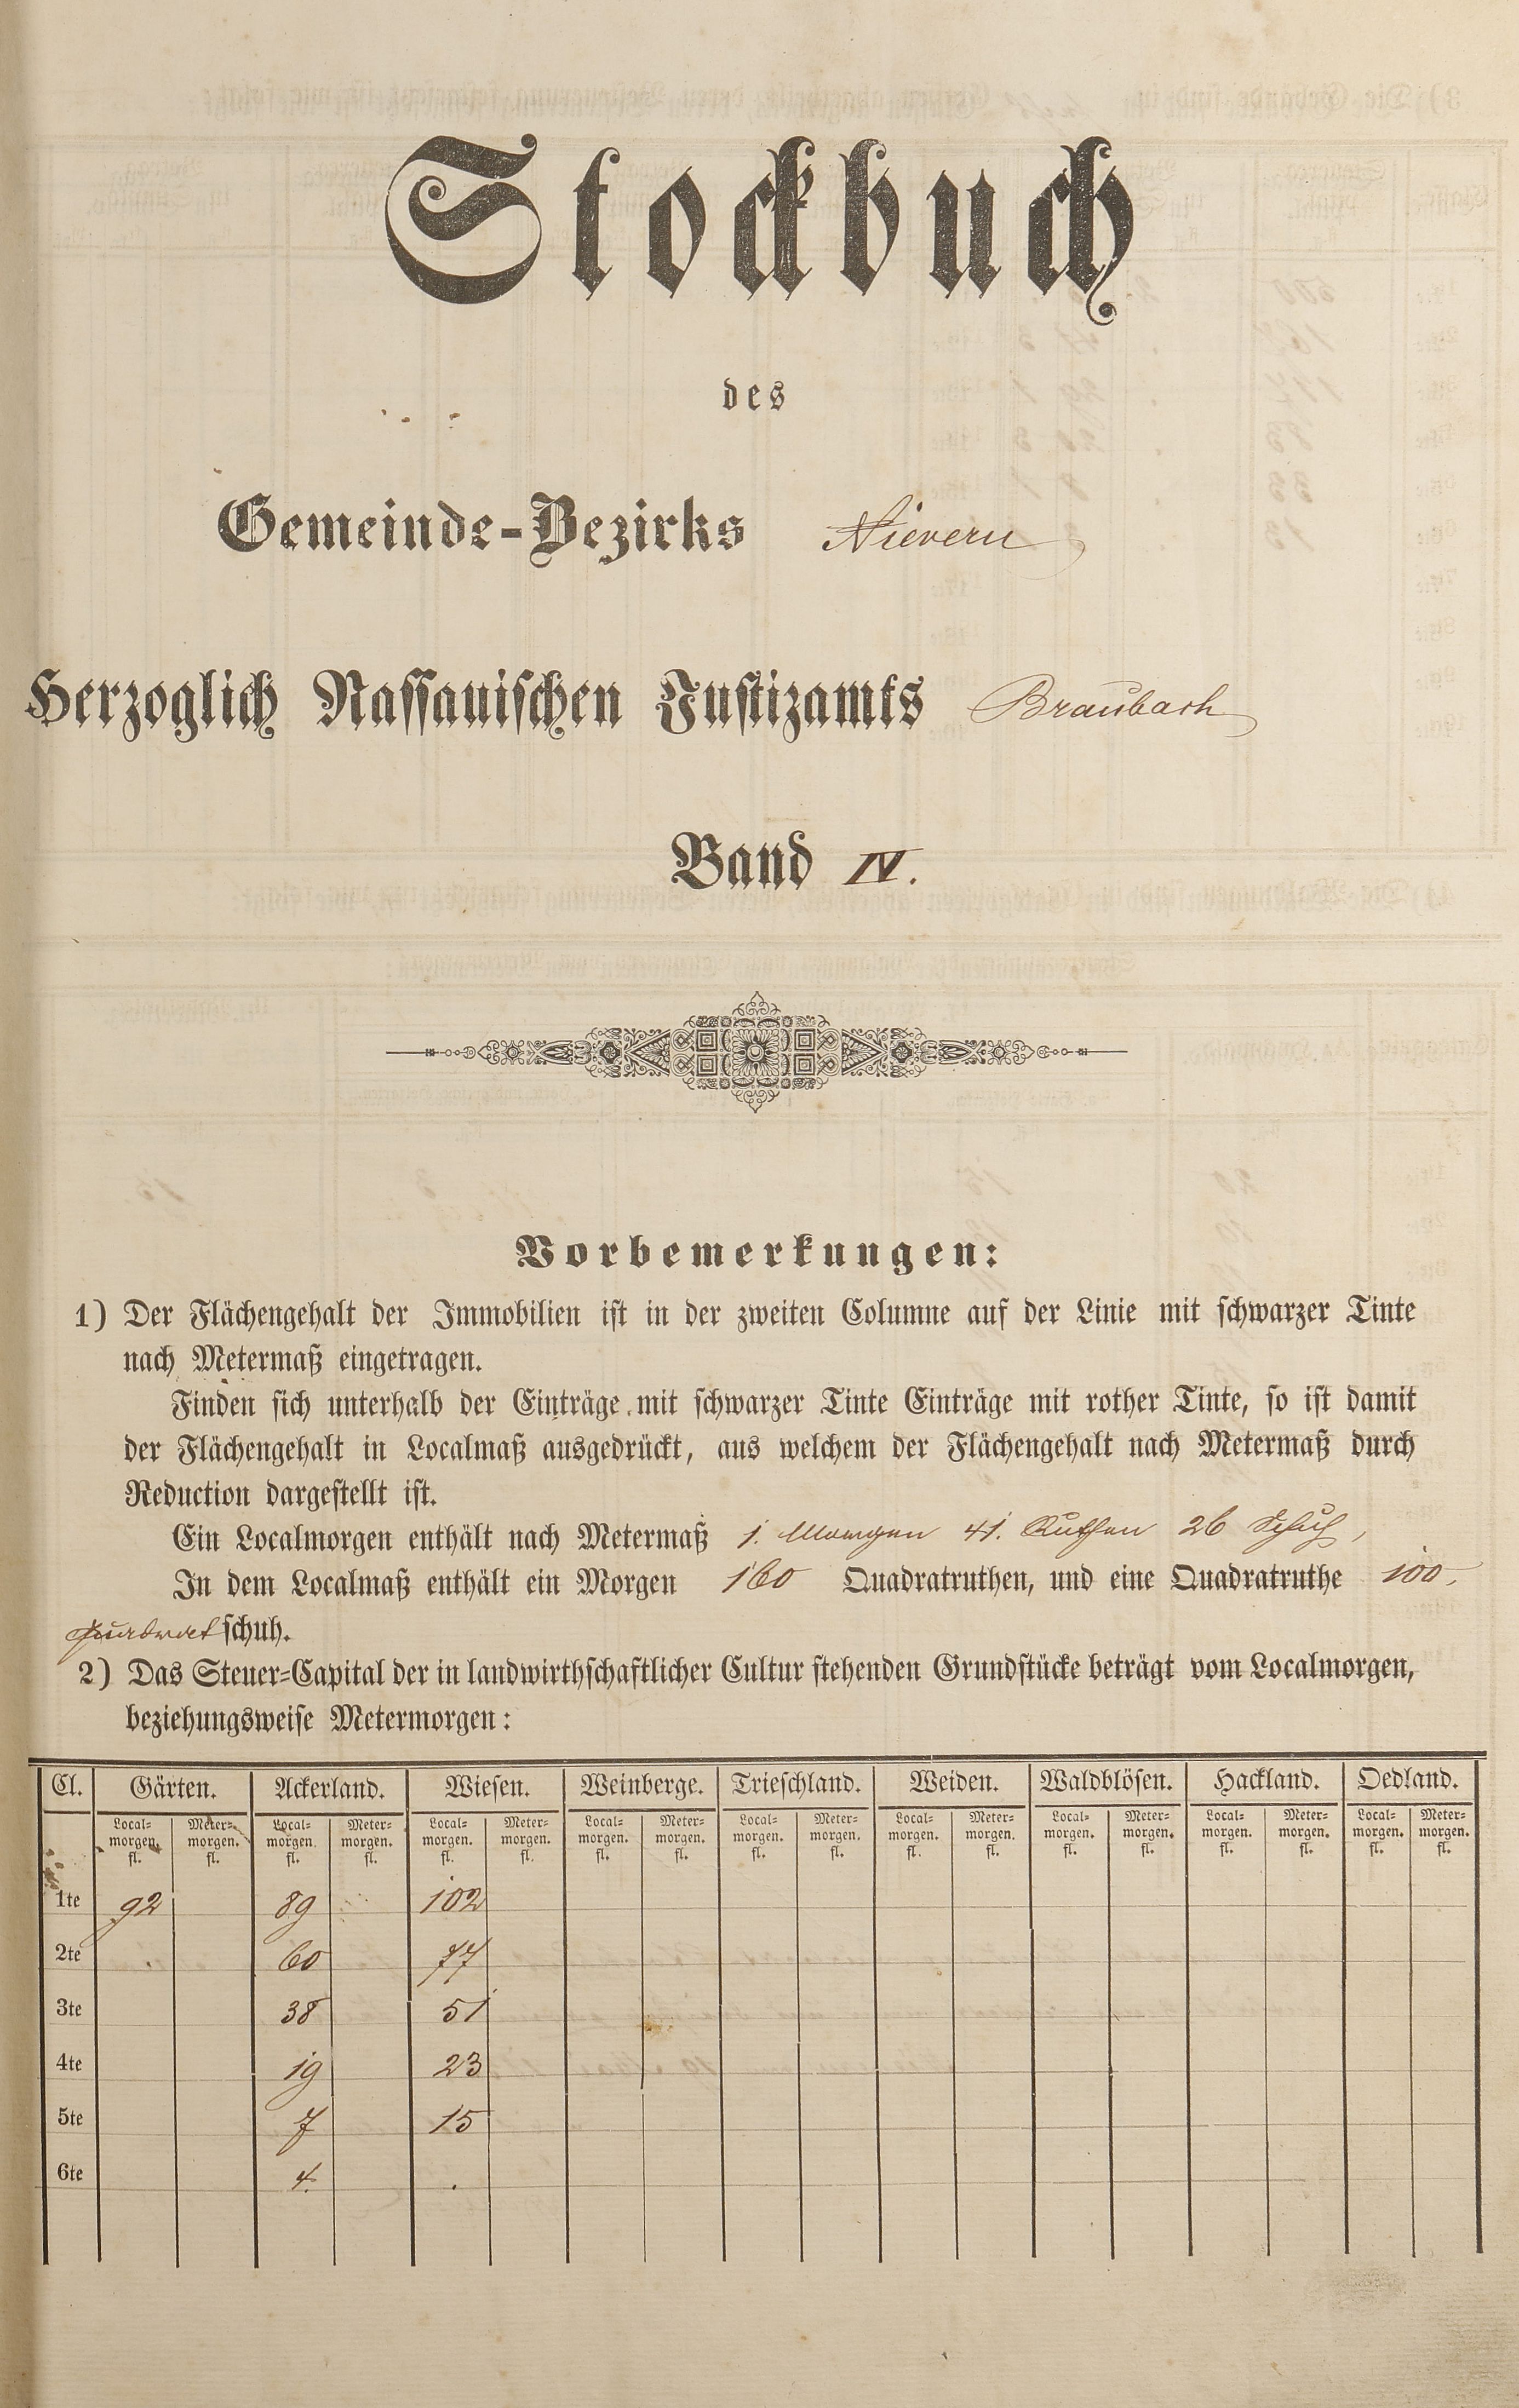 Stockbuch
des
Gemeinde-Bezirks Nievern
Herzoglich Nassauischen Justizamts Braubach
Band IV.
Vorbemerkungen:
1) Der Flächengehalt der Immobilien ist in der zweiten Columne auf der Linie mit schwarzer Tinte
nach Metermaß eingetragen.
Finden sich unterhalb der Einträge mit schwarzer Tinte Einträge mit rother Tinte, so ist damit
der Flächengehalt in Localmaß ausgedrückt, aus welchem der Flächengehalt nach Metermaß durch
Reduction dargestellt ist.
Ein Localmorgen enthält nach Metermaß 1. Morgen 41. Ruthen 26 Schuh,
In dem Localmaß enthält ein Morgen 160 Quadratruthen, und eine Quadratruthe 100.
Quadratschuh.
2) Das Steuer=Capital der in landwirthschaftlicher Cultur stehenden Grundstücke beträgt vom Localmorgen,
beziehungsweise Metermorgen:
Cl. Gärten. Ackerland. Wiesen. Weinberge. Trieschland. Weiden. Waldblösen. Hackland. Oedland.
Local= Meter= Local= Meter= Local= Meter= Local= Meter= Local= Meter= Local= Meter= Local= Meter= Local= Meter= Local= Meter=
morgen. morgen. morgen. morgen. morgen. morgen. morgen. morgen. morgen. morgen. morgen. morgen. morgen. morgen. morgen. morgen. morgen. morgen.
fl. fl. fl. fl. fl. fl. fl. fl. fl. fl. fl. fl. fl. fl. fl. fl. fl. fl.
1te 92 89 102
2te . 60 77
3te 38 51
4te 19 23
5te 7 15
6te 4. .